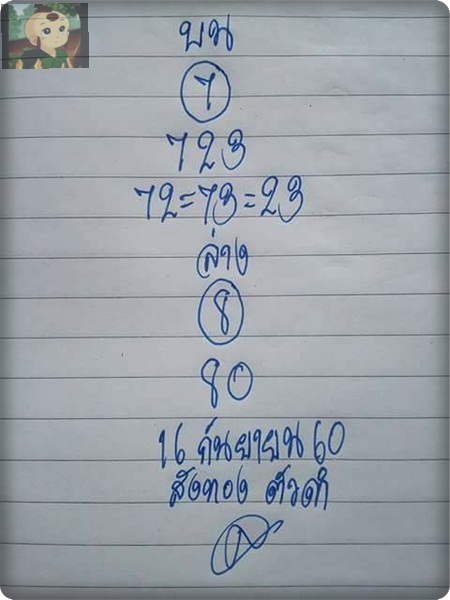 บน
7
723
72=73=23
ล่าง
8
80
16 กันยายน 60
สังทอง ตัวดำ